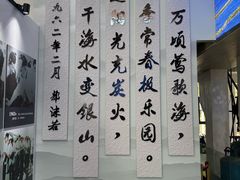 万顷莺歌海，
季常春极乐园。
光充炭火，
干海水变银山。
九六二年二月 郭沫若